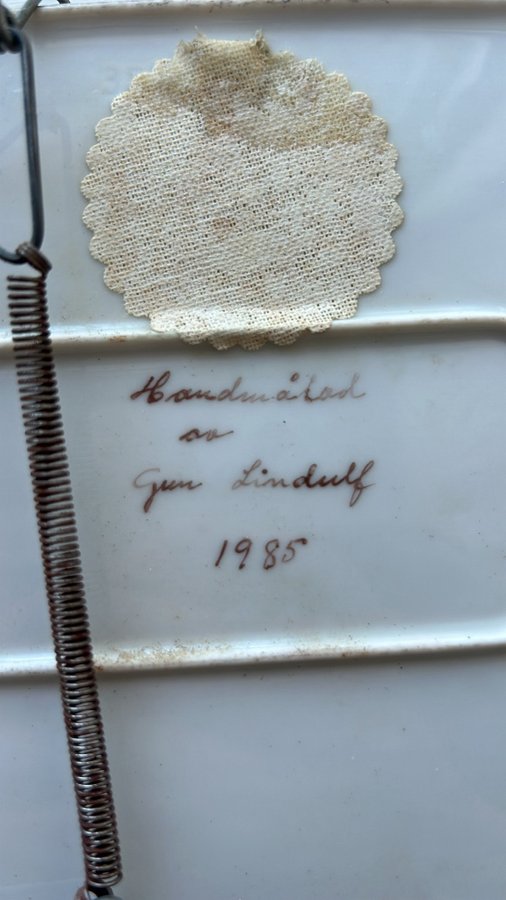 Handmålad
av
Gun Lindulf
1985